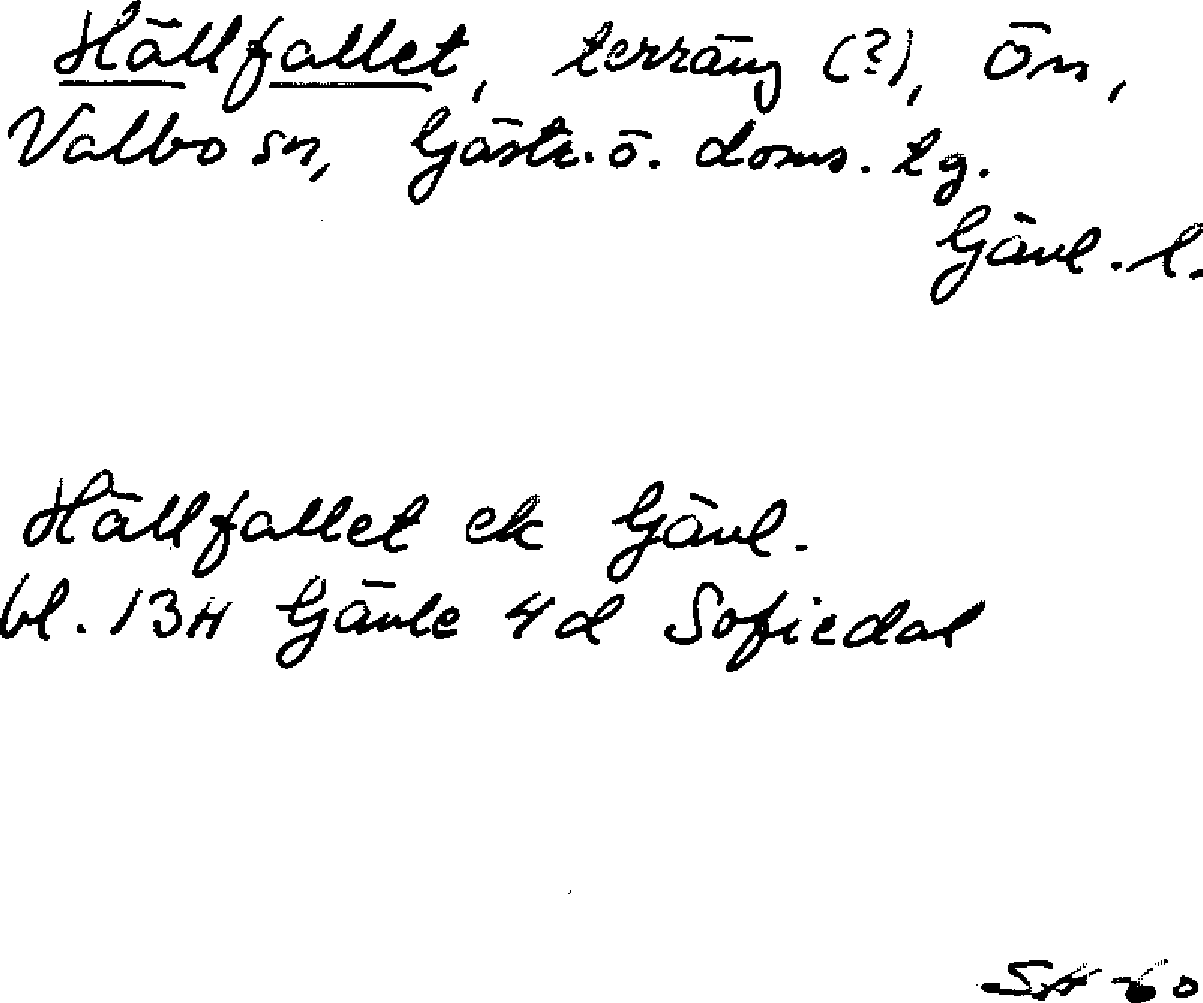 Hällfallet, terräng (?), Ön,
Valbo sn, Gästr. ö. doms. tg.
Gävl. l.
Hällfallet ek Gävl.
bl. 13H Gävle 4d Sofiedal
SH 60